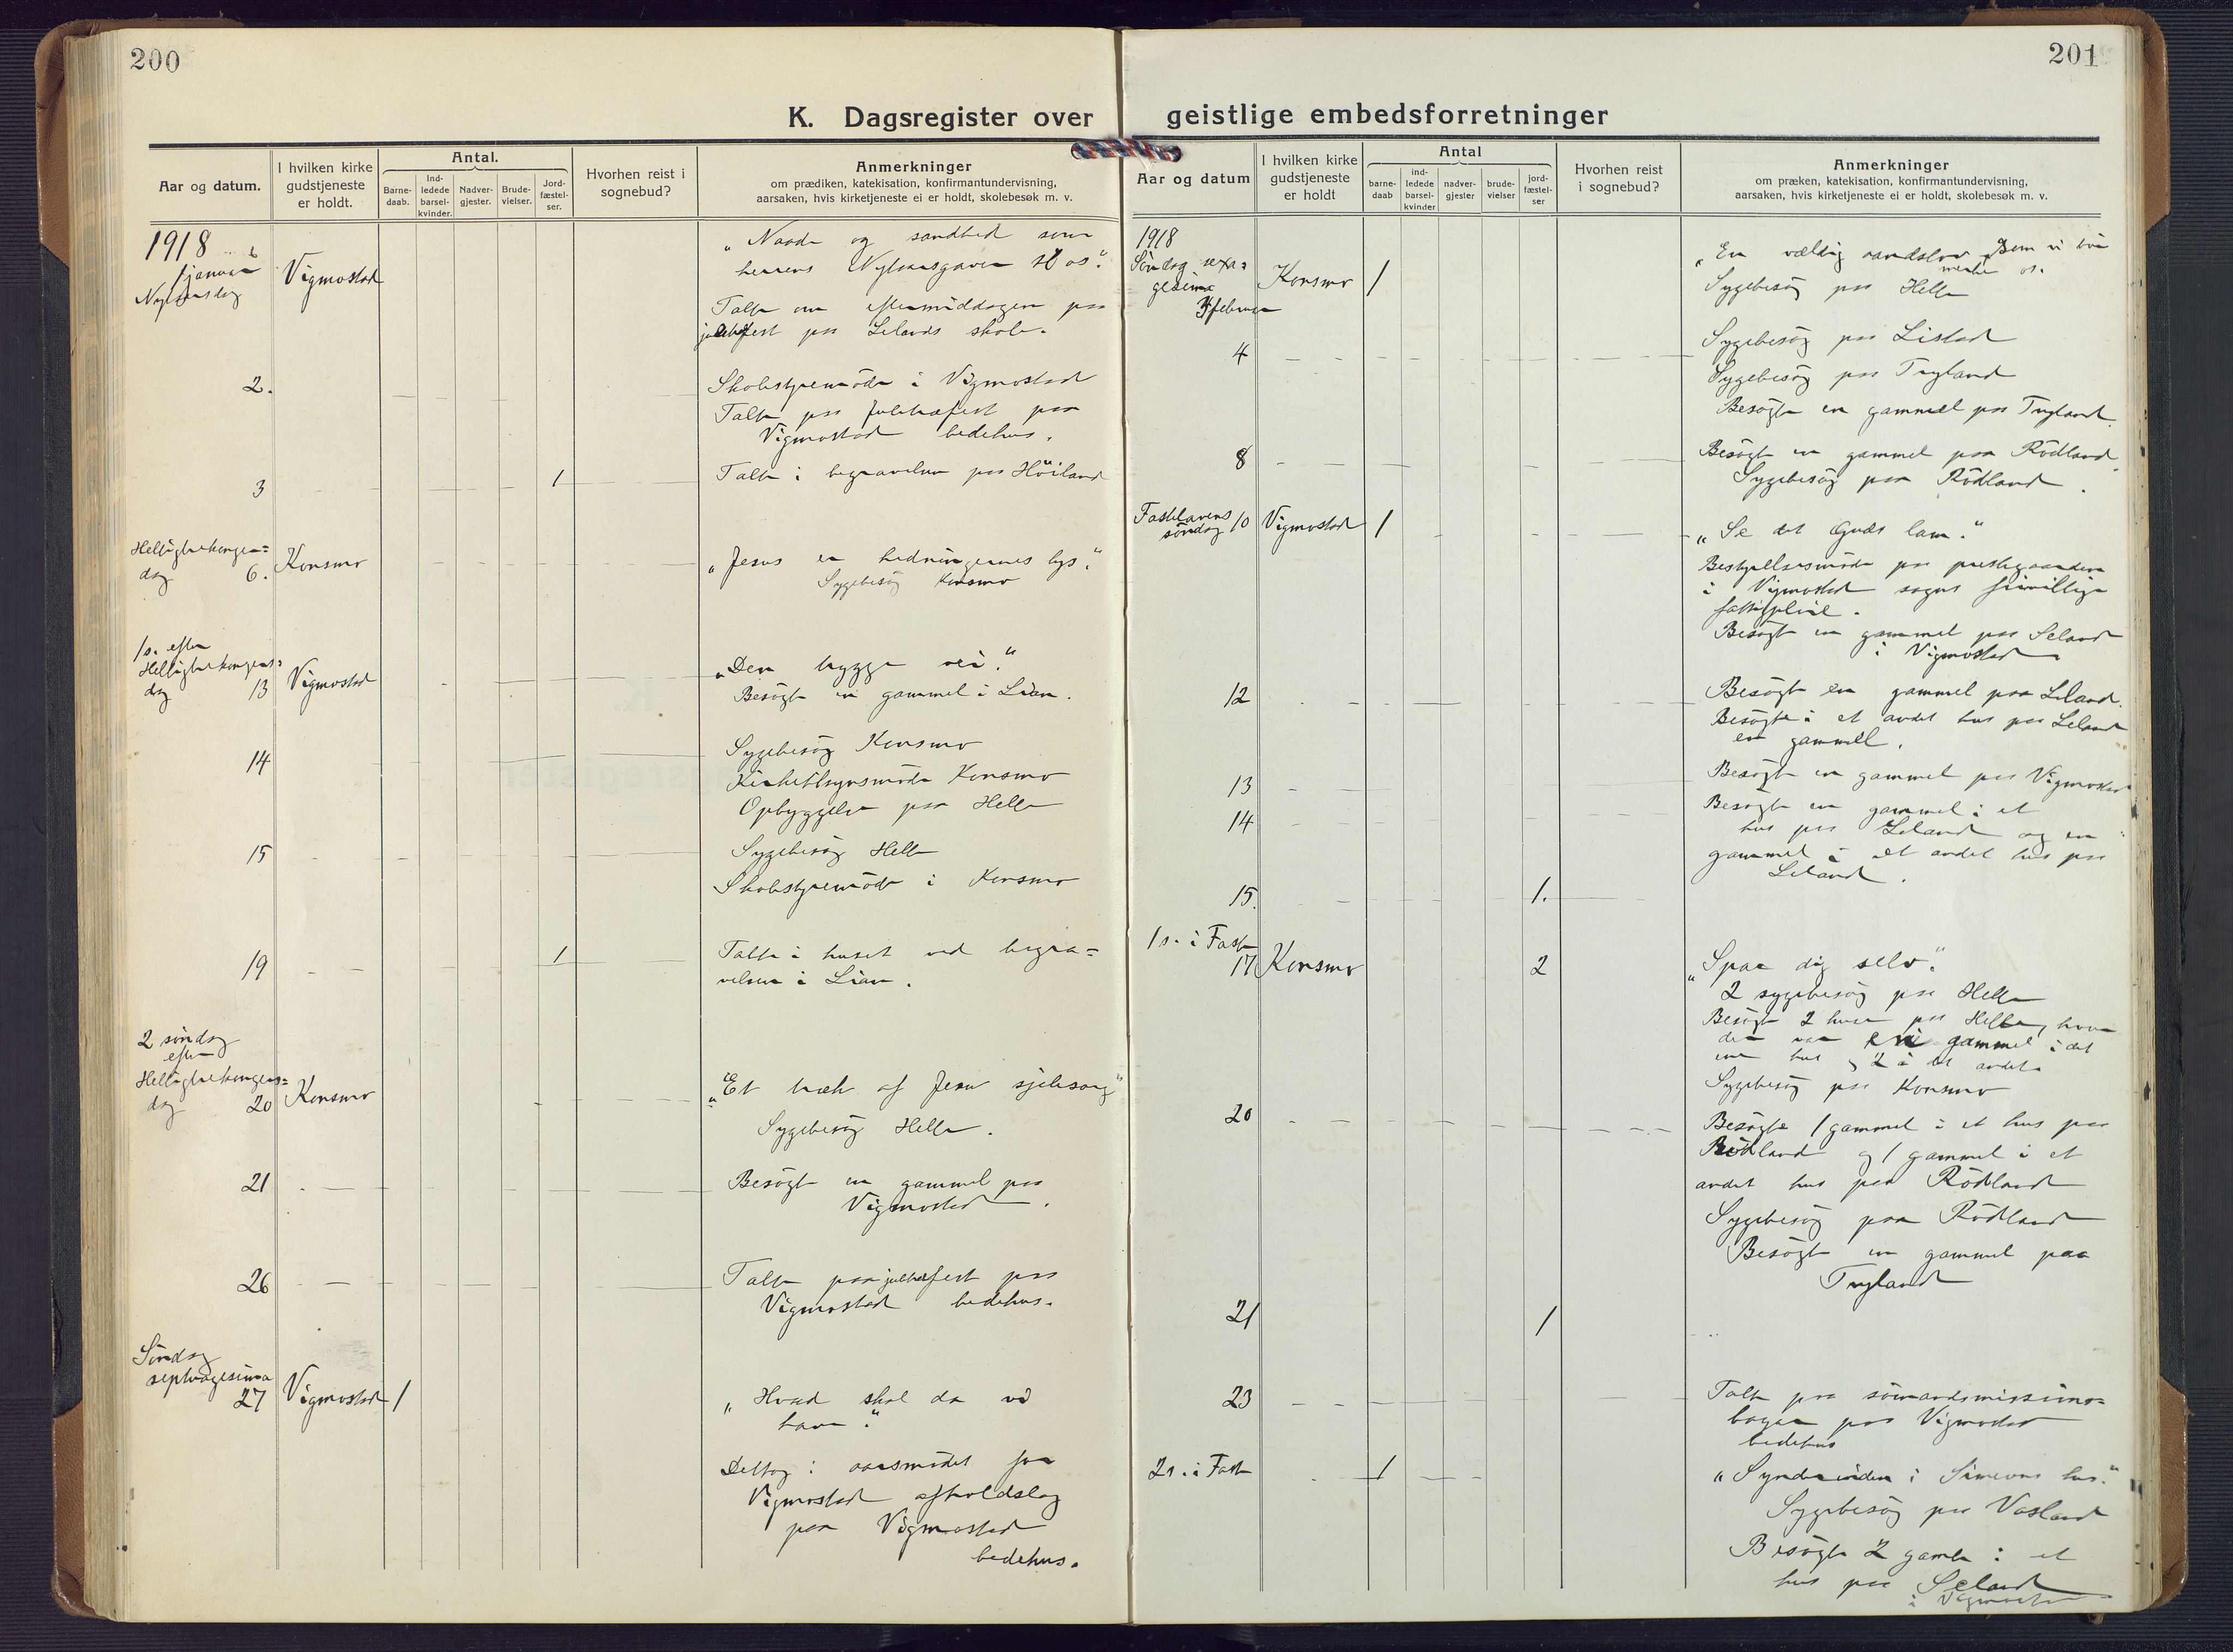 200
K. Dagsregister over
Aar og datum.
I hvilken kirke gudstjeneste er holdt.
Antal.
Barne-daab.
Ind-ledede barsel-kvinder.
Nadver-gjester.
Brude-vielser.
Jord-fæstel-ser.
Hvorhen reist i sognebud?
Anmerkninger
om prædiken, katekisation, konfirmantundervisning,
aarsaken, hvis kirketjeneste ei er holdt, skolebesøk m. v.
1918
1 januar
Nytaarsdag
Vigmostad
"Naade og sandhed som
herrens Nytaarsgaver til os."
Talte om eftermiddagen paa
juletræfest paa Lelands skole.
2.
Skolestyremöde i Vigmostad
Talte paa juletræfest paa
Vigmostad bedehus.
3
1
Talte i begravelse paa Höiland
Helligtrekonger=
dag 6.
Konsmo
"Jesus er hedningernes lys."
Sygebesög Konsmo
1 s. efter
Helligtrekongers=
dag 13
Vigmostad
"Den trygge vei."
Besögte en gammel i Lian.
14
Sygebesög Konsmo
Kirketilsynsmöde Konsmo
Opbyggelse paa Helle
15
Sygebesög Helle
Skolestyremöde i Konsmo
19
1
Talte i huset ved begra=
velsen i Lian.
2 söndag
efter
Helligtrekongers=
dag 20
Konsmo
"Et træk af Jesu sjelesorg"
Sygebesög Helle.
21
Besögte en gammel paa
Vigmostad.
26
Talte paa juletræfest paa
Vigmostad bedehus.
Söndag
septuagesima
27
Vigmostad
1
"Hvad skal da vi
have."
Deltog i aarsmödet for
Vigmostad afholdslag
paa Vigmostad
bedehus.
201
geistlige embedsforretninger
Aar og datum
I hvilken kirke gudstjeneste er holdt
Antal
barne-daab
ind-ledede barsel-kvinder
nadver-gjester
brude-vielser
jord-fæstel-ser
Hvorhen reist i sognebud?
Anmerkninger
om præken, katekisation, konfirmantundervisning,
aarsaken, hvis kirketjeneste ei er holdt, skolebesøk m. v.
1918
Söndag sexa=
gesima
3 februar
Konsmo
1
"En vældig aandslov som vi bör
merke os.
Sygebesög paa Helle
4
Sygebesög paa Listad
Sygebesög paa Tryland
Besögte en gammel paa Tryland.
8
Besögte en gammel paa Rödland.
Sygebesög paa Rödland.
Fastelavens
söndag 10
Vigmostad
1
"Se det Guds lam."
Bestyrelsesmöde paa prestegaarden
i Vigmostad sogns frivillige
fattigpleie.
Besögte en gammel paa Seland
i Vigmostad
12
Besögte en gammel paa Leland.
Besögte i et andet hus paa Leland
en gammel.
13
Besögte en gammel paa Vigmostad
14
Besögte en gammel i et
hus paa Leland og en
gammel i et andet hus paa
Leland.
15.
1.
1 s. i Faste
17
Konsmo
2
"Spar dig selv."
2 sygebesög paa Helle
Besögte 2 huse paa Helle, hvor
der var en gammel i det
ene hus og 2 i det andet.
Sygebesög paa Konsmo
20
Besögte 1 gammel i et hus paa
Rödland og 1 gammel i et
andet hus paa Rödland
Sygebesög paa Rödland
Besögte en gammel paa
Tryland
21
1
23
Talte paa sömandsmissions=
paa Vigmostad
bedehus
2 s. i Faste
1
"Synderinden i Simeons hus."
Sygebesög paa Vasland
Besögte 2 gamle i et
hus paa Seland
i Vigmostad